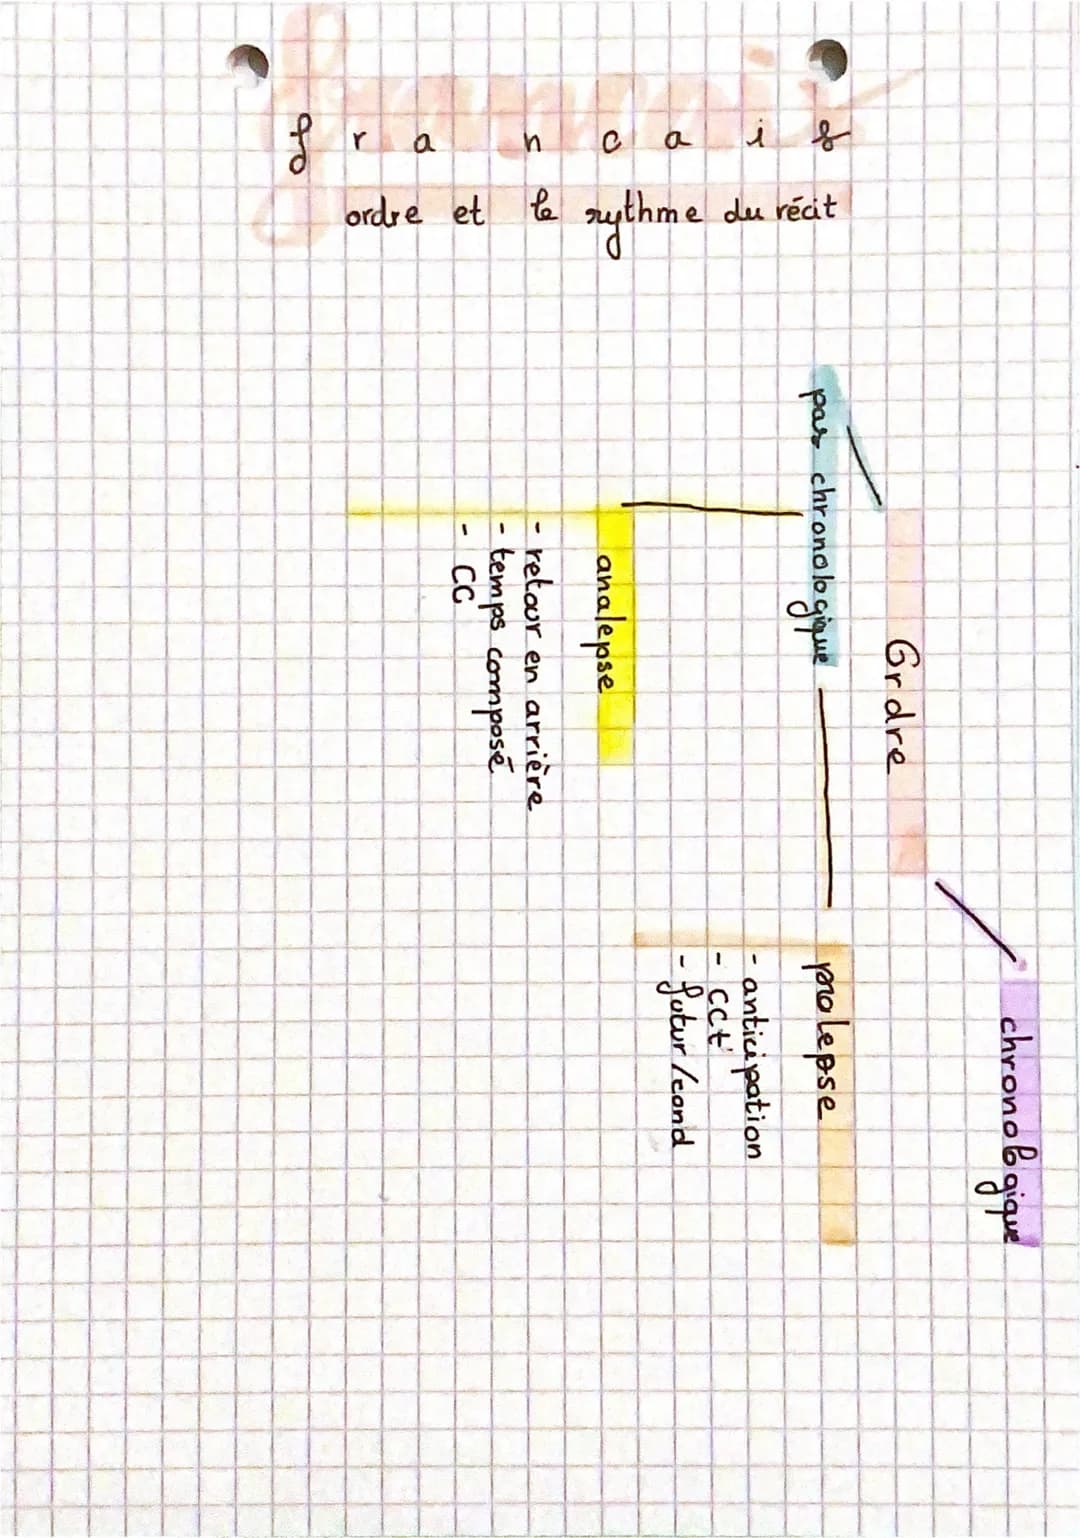 francais
ordre et le rythme du récit
Ordre
chronologique
pas chronologique
prolepse
- anticipation
- CCt
- futur/cond
analepse
- retour en arrière
- temps composé
- CC